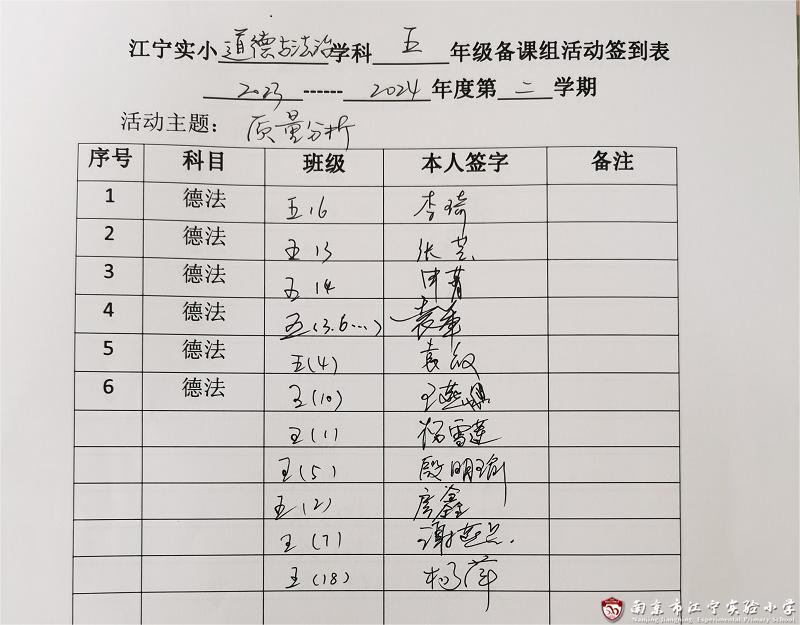 江宁实小道德与法治学科 五 年级备课组活动签到表
2023------2024年度第二学期
活动主题：质量分析
序号 科目 班级 本人签字 备注
1 德法 五16 李琦
2 德法 五13 张芸
3 德法 五14 申菁
4 德法 五(3.6...)
5 德法 五(4) 袁敏
6 德法 五(10) 王燕
五(1) 杨雪莲
五(5) 殷明瑜
五(2) 房鑫
五(7)
五(18) 杨萍
南京市江宁实验小学
Nanjing Jiangning Experimental Primary School